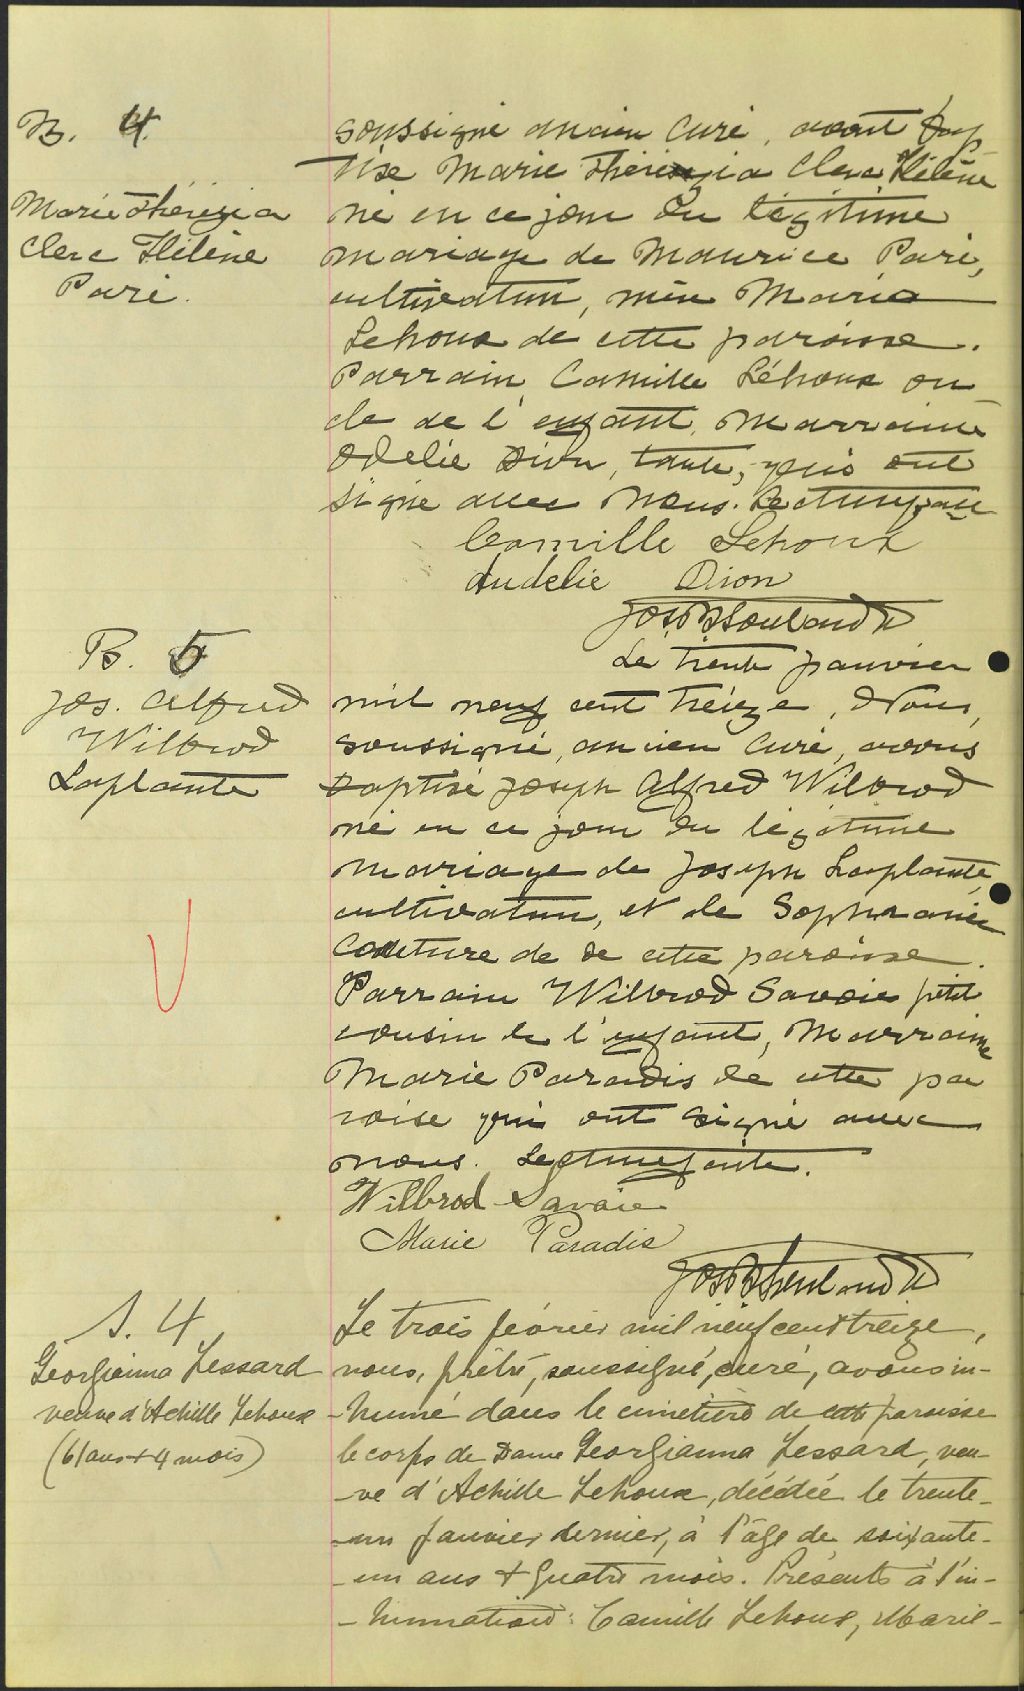 B. 4.
Marie Thérézia
Clerc Hélène
Paré.
soussigné ancien curé, avont bap
tise Marie Thérézia Clerc Hélène
né en ce jour du légitime
mariage de Maurice Paré,
cultivateur, mère Maria
Lehoux de cette paroisse.
Parrain Camille Léhoux on
cle de l'enfant, Marraine
Odelie Dion, tante, qui ont
signé avec nous. Lecture faite
Camille Lehoux
Audelie Dion
B. 5
Jos. Alfred
Wilbrod
Laplante
Le trente janvier
mil neuf cent treize, Nous,
soussigné, ancien curé, avons
baptisé Joseph Alfred Wilbrod
né en ce jour du légitime
mariage de Joseph Laplante,
cultivateur, et de Sophranie
Couture de de cette paroisse.
Parrain Wilbrod Savoie petit
cousin de l'enfant, Marraine
Marie Paradis de cette pa
roise qui ont signé avec
nous. Lecture faite.
Wilbrod Savoie
Marie Paradis
S. 4
Georgianna Lessard
veuve d'Achille Lehoux
(61 ans + 4 mois)
Le trois février mil neuf cent treize,
nous, prêtre, soussigné, curé, avons in-
-humé dans le cimetière de cette paroisse
le corps de Dame Georgianna Lessard, veu-
-ve d'Achille Lehoux, décédée le trente-
-un janvier dernier, à l'âge de soixante-
-un ans + quatre mois. Présents à l'in-
-humation: Camille Lehoux, Marie-